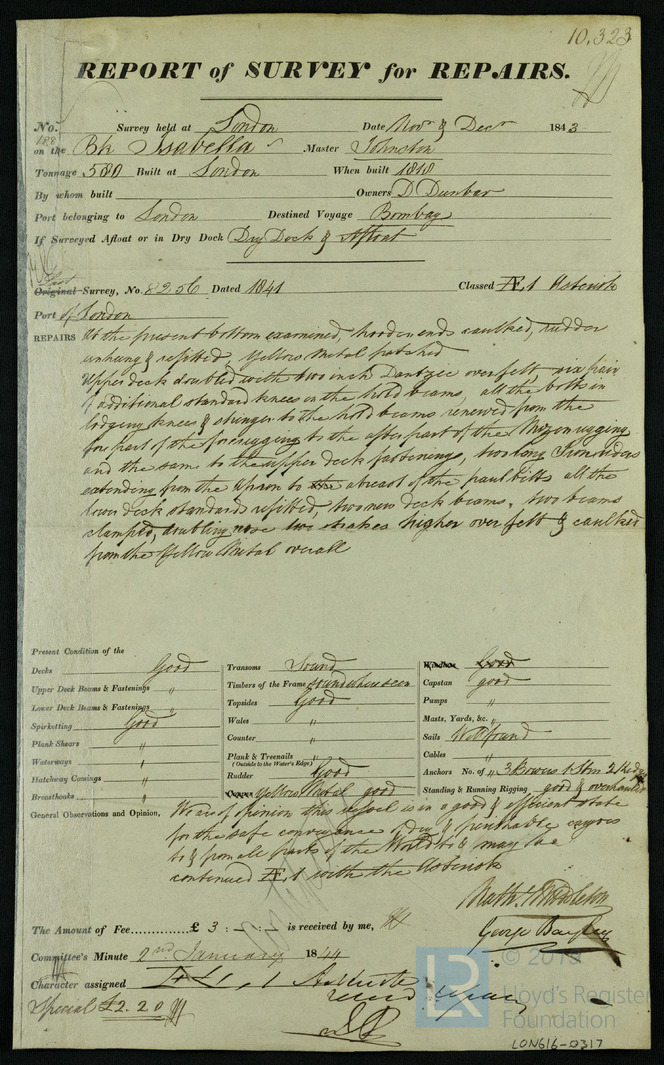 10,323
REPORT of SURVEY for REPAIRS.
No. 188 Survey held at London Date Novr & Decr 1843
on the Bk Isabella Master Johnston
Tonnage 580 Built at London When built 1818
By whom built Owners D Dunbar
Port belonging to London Destined Voyage Bombay
If Surveyed Afloat or in Dry Dock Dry Dock & Afloat
Last
Original Survey, No. 8256 Dated 1841 Classed Æ 1 Asterisk
Port of London
REPAIRS At the present bottom examined, hooden ends caulked, rudder
unhung & refitted, Yellow Metal patched
Upper deck doubled with two inch Dantzic over felt, six pair
of additional standard knees on the hold beams, all the bolts in
lodging knees & stringer to the hold beams renewed from the
fore part of the forerigging to the after part of the Mizenrigging
and the same to the upper deck fastenings, two long Iron riders
extending from the apron to the abreast of the paul bitts all the
lower deck standards refitted, two new deck beams, two beams
clamped, doubling now two strakes higher over felt & caulked
from the Yellow Metal overall
Present Condition of the
Decks Good
Upper Deck Beams & Fastenings "
Lower Deck Beams & Fastenings "
Spirketting Good
Plank Shears "
Waterways "
Hatchway Comings "
Breasthooks "
Transoms Sound
Timbers of the Frame sound where seen
Topsides Good
Wales "
Counter "
Plank & Treenails "
(Outside to the Water's Edge)
Rudder Good
Copper Yellow Metal good
Windlass Good
Capstan good
Pumps "
Masts, Yards, &c. "
Sails Well found
Cables "
Anchors No. of " 3 Bowers 1 Strm 2 Kedge
Standing & Running Rigging good & overhauled
General Observations and Opinion, We are of opinion this vessel is in a good & efficient state
for the safe conveyance of dry & perishable cargoes
to & from all parts of the World & may be
continued Æ 1 with the Asterisk
Nathl Middleton
George Bayley
The Amount of Fee £ 3 : - : - is received by me,
Committee's Minute 2nd January 1844
Character assigned Æ 1 Asterisk
Special £2.2.0
© 2019
LR
Lloyd's Register
Foundation
LON616-0317